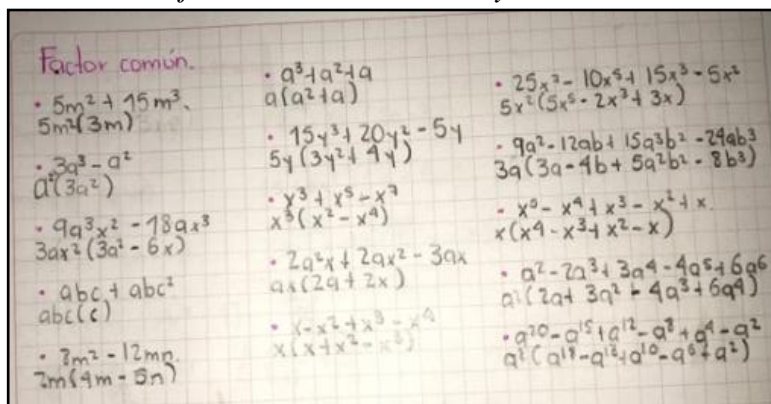 Factor común.
• 5m² + 15m³.
5m²(3m)
• 3a³ - a²
a²(3a²)
• 9a³x² - 18ax³
3ax²(3a² - 6x)
• abc + abc²
abc(c)
• 8m² - 12mn.
2m(4m - 5n)
• a³+a²+a
a(a²+a)
• 15y³+20y² - 5y
5y(3y²+4y)
• x³ + x⁵ - x⁷
x³(x² - x⁴)
• 2a²x + 2ax² - 3ax
ax(2a + 2x)
• x - x² + x³ - x⁴
x(x + x² - x³)
• 25x⁷ - 10x⁵ + 15x³ - 5x²
5x²(5x⁵ - 2x³ + 3x)
• 9a² - 12ab + 15a³b² - 24ab³
3a(3a - 4b + 5a²b² - 8b³)
• x⁵ - x⁴ + x³ - x² + x.
x(x⁴ - x³ + x² - x)
• a² - 2a³ + 3a⁴ - 4a⁵ + 6a⁶
a²(2a + 3a² - 4a³ + 6a⁴)
• a²⁰ - a¹⁵ + a¹² - a⁸ + a⁴ - a²
a²(a¹⁸ - a¹³ + a¹⁰ - a⁶ + a²)